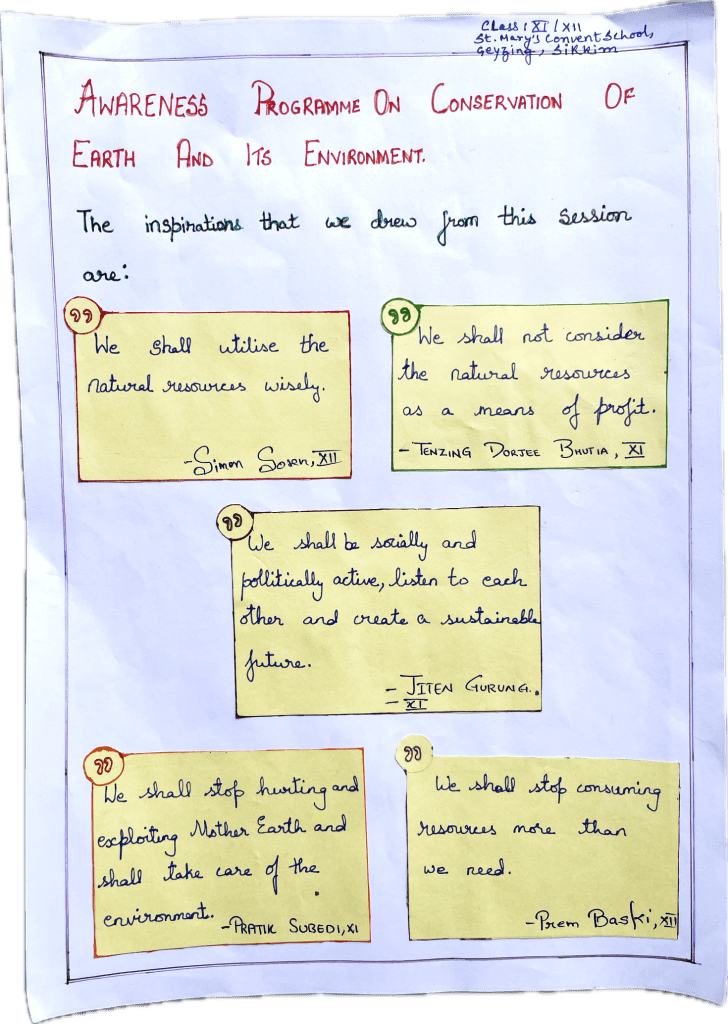 Class: XI/XII
St. Mary's Convent School,
Geyzing, Sikkim
AWARENESS PROGRAMME ON CONSERVATION OF
EARTH AND ITS ENVIRONMENT.
The inspirations that we drew from this session
are:
We shall utilise the
natural resources wisely.
-Simon Soren, XII
We shall not consider
the natural resources
as a means of profit.
- TENZING DORJEE BHUTIA, XI
We shall be socially and
pollitically active, listen to each
other and create a sustainable
future.
- JITEN GURUNG.
- XI
We shall stop hurting and
exploiting Mother Earth and
shall take care of the
environment.
-PRATIK SUBEDI, XI
We shall stop consuming
resources more than
we need.
-Prem Baski, XII